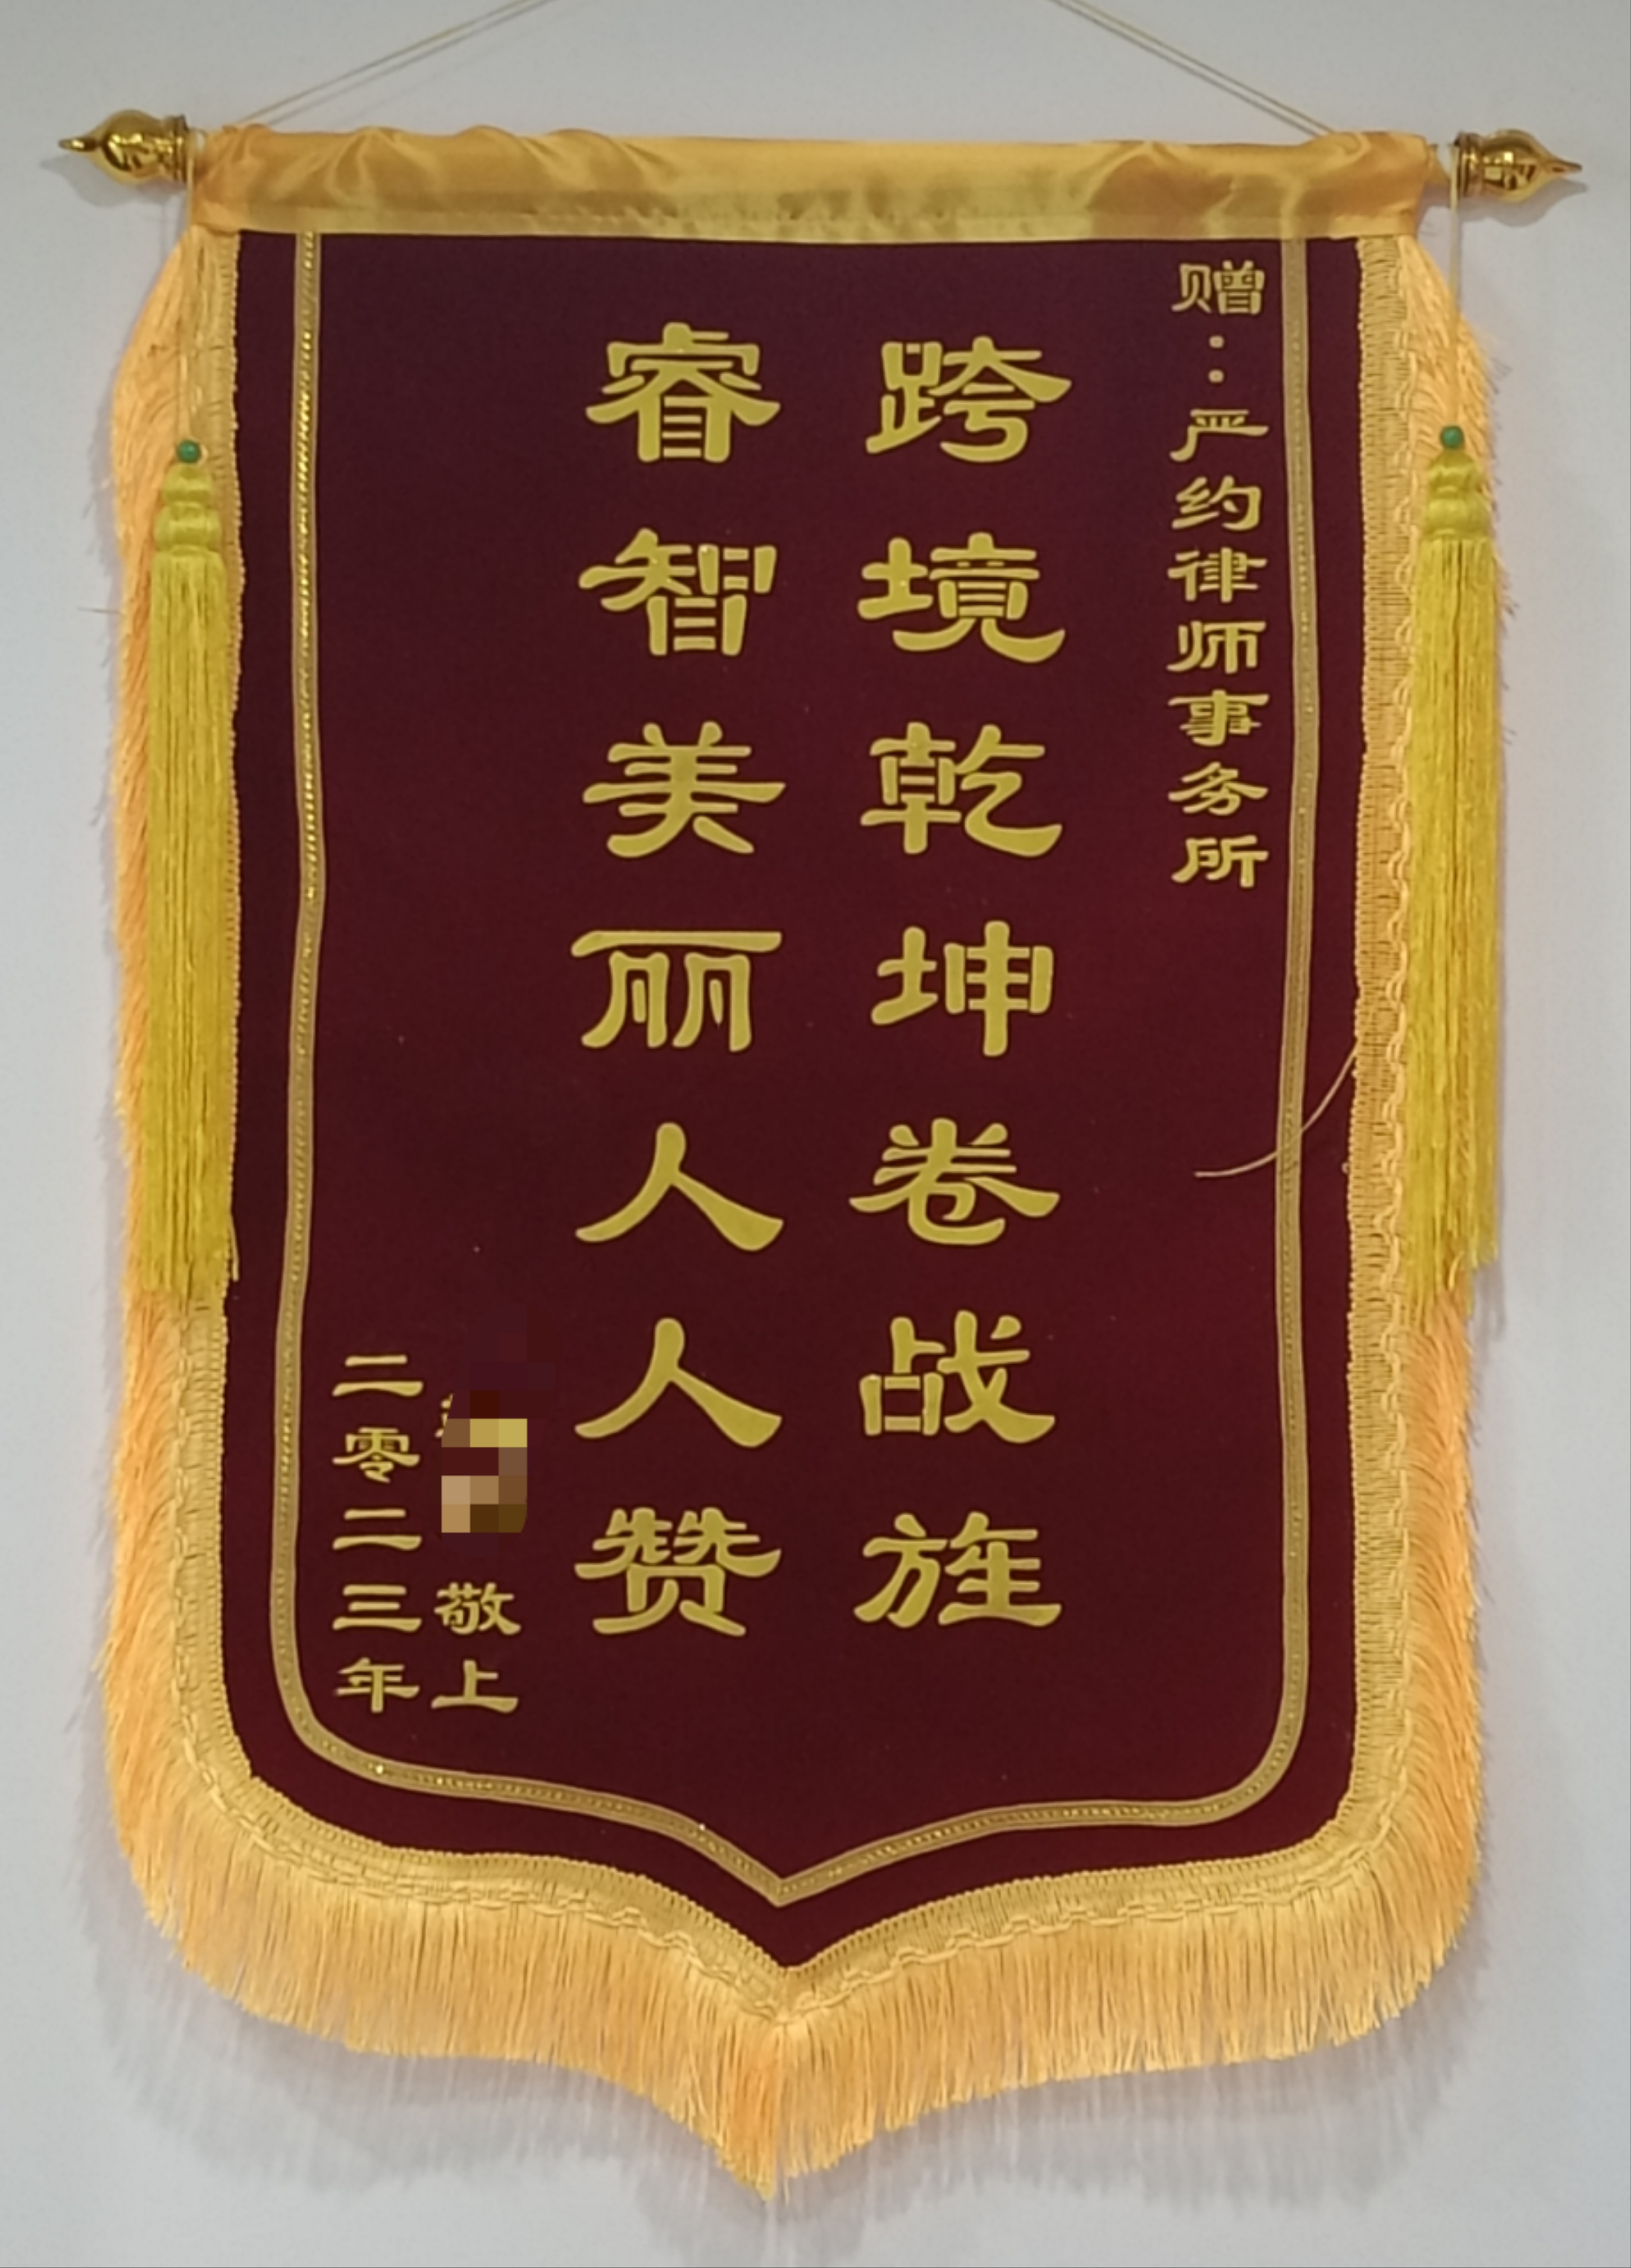 赠：严约律师事务所
跨境乾坤卷战旌
睿智美丽人人赞
敬上
二零二三年